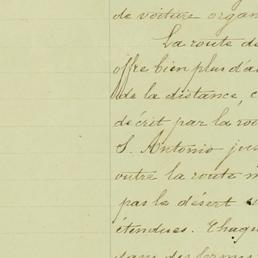 de voiture organ
La route de
offre bien plus d'a
de la distance, c
décrit par la rou
S. Antonio jus
outre la route m
pas le désert
étendues. Chaqu
dans des fermes